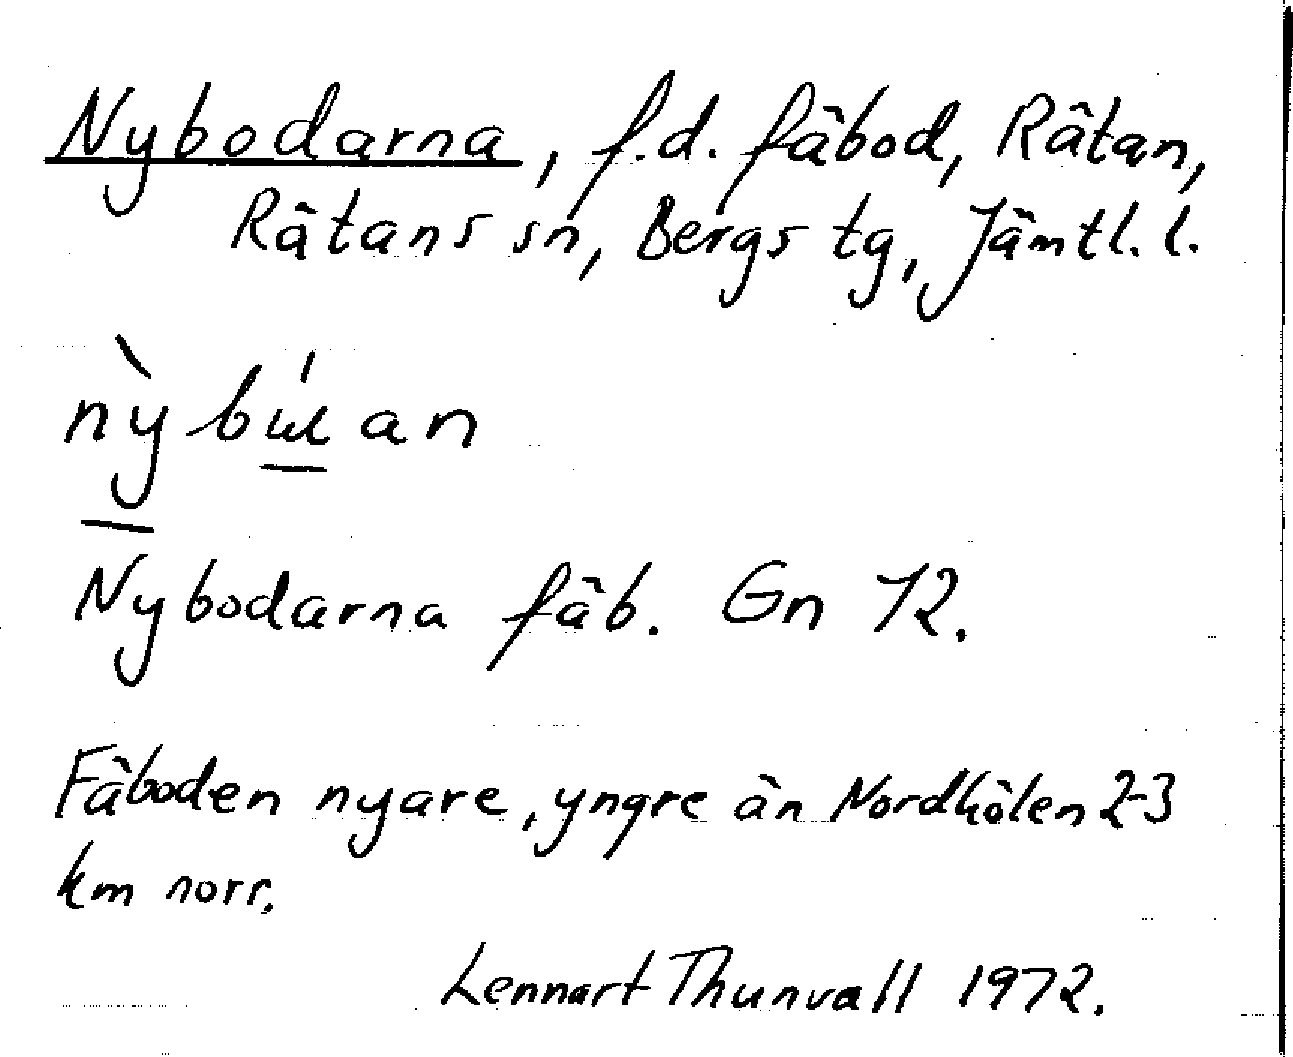 Nybodarna, f.d. fäbod, Rätan,
Rätans sn, Bergs tg, Jämtl. l.
Nybodarna fäb. Gn 72.
Fäboden nyare, yngre än Nordhölen 2-3
km norr.
Lennart Thunvall 1972.